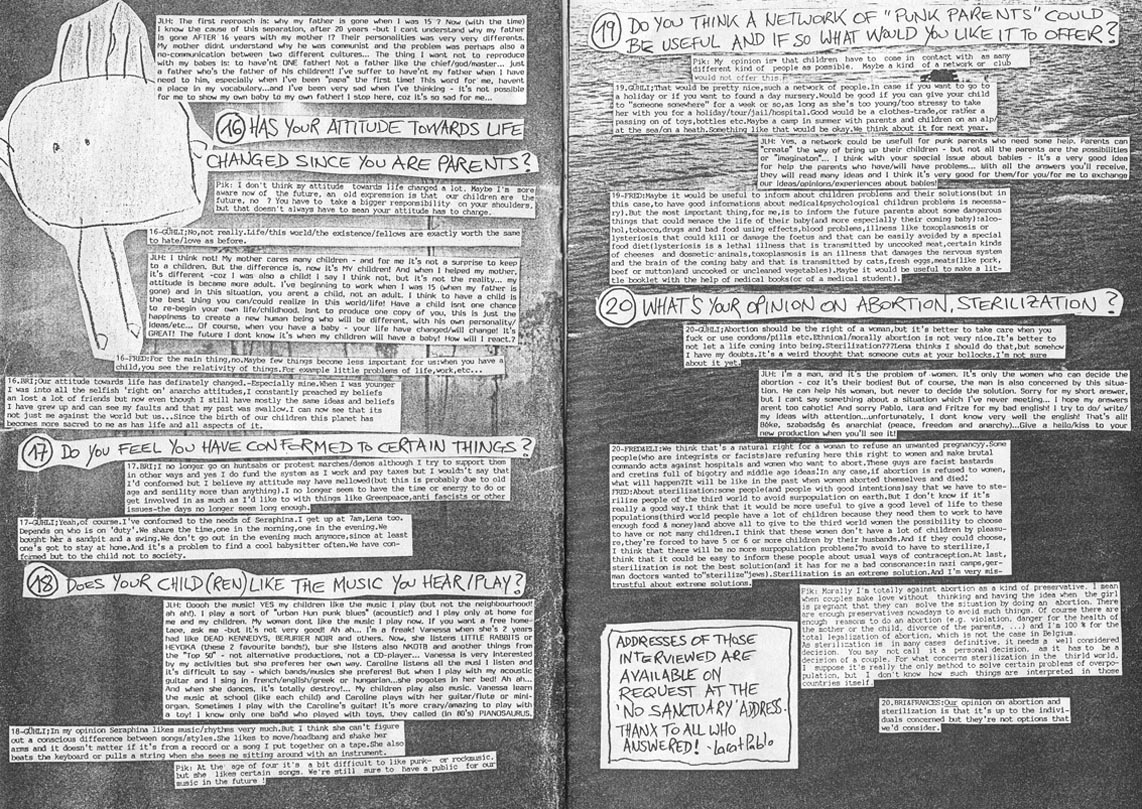 JLH: The first reproach is: why my father is gone when I was 15 ? Now (with the time)
I know the cause of this separation, after 20 years -but I cant understand why my father
is gone AFTER 16 years with my mother !? Their personalities was very very differents.
My mother didnt understand why he was communist and the problem was perhaps also a
no-communication between two different cultures... The thing I want not to reproduce
with my babes is: to have'nt ONE father! Not a father like the chief/god/master... just
a father who's the father of his children!! I've suffer to have'nt my father when I have
need to him, especially when I've been "papa" the first time! This word for me, havent
a place in my vocabulary...and I've been very sad when I've thinking - it's not possible
for me to show my own baby to my own father! I stop here, coz it's so sad for me...
16 HAS YOUR ATTITUDE TOWARDS LIFE
CHANGED SINCE YOU ARE PARENTS?
Pik: I don't think my attitude towards life changed a lot. Maybe I'm more
aware now of the future, an old expression is that our children are the
future, no ? You have to take a bigger responsibility on your shoulders,
but that doesn't always have to mean your attitude has to change.
16-GÜHLI;No,not really.Life/this world/the existence/fellows are exactly worth the same
to hate/love as before.
JLH: I think not! My mother cares many children - and for me it's not a surprise to keep
to a children. But the difference is, now it's MY children! And when I helped my mother,
it's different -coz I was also a child! I say I think not, but it's not the reality... my
attitude is became more adult. I've beginning to work when I was 15 (when my father is
gone) and in this situation, you arent a child, not an adult. I think to have a child is
the best thing you can/could realize in this world/life! Have a child isnt one chance
to re-begin your own life/childhood. Isnt to produce one copy of you, this is just the
happiness to create a new human being who will be different, with his own personality/
ideas/etc... Of course, when you have a baby - your life have changed/will change! It's
GREAT! The future I dont know it's when my children will have a baby! How will I react.?
16-FRED:For the main thing,no.Maybe few things become less important for us:when you have a
child,you see the relativity of things.For example little problems of life,work,etc...
16.BRI;Our attitude towards life has definately changed,-Especially mine.When I was younger
I was into all the selfish 'right on' anarcho attitudes,I constantly preached my beliefs
an lost a lot of friends but now even though I still have mostly the same ideas and beliefs
I have grew up and can see my faults and that my past was swallow.I can now see that its
not just me against the world but us...Since the birth of our children this planet has
becomes more sacred to me as has life and all aspects of it.
17 DO YOU FEEL YOU HAVE CONFORMED TO CERTAIN THINGS?
17.BRI;I no longer go on huntsabs or protest marches/demos although I try to support them
in other ways and yes I do fund the system as I work and pay taxes but I wouldn't say that
I'd conformed but I believe my attitude may have mellowed(but this is probably due to old
age and senility more than anything).I no longer seem to have the time or energy to do or
get involved in as much as I'd like to with things like Greenpeace,anti fascists or other
issues-the days no longer seem long enough.
17-GÜHLI;Yeah,of course.I've conformed to the needs of Seraphina.I get up at 7am,Lena too.
Depends on who is on 'duty'.We share the time,one in the morning,one in the evening.We
bought her a sandpit and a swing.We don't go out in the evening much anymore,since at least
one's got to stay at home.And it's a problem to find a cool babysitter often.We have con-
formed but to the child not to society.
18 DOES YOUR CHILD(REN) LIKE THE MUSIC YOU HEAR/PLAY?
JLH: Ooooh the music! YES my children like the music I play (but not the neighbourhood!
ah ah!). I play a sort of "urban Hun punk blues" (acoustic!) and I play only at home for
me and my children. My woman dont like the music I play now. If you want a free home-
tape, ask me -but it's not very good! Ah ah... I'm a freak! Vanessa when she's 2 years
had like DEAD KENNEDYS, BERURIER NOIR and others. Now, she listens LITTLE RABBITS or
HEYOKA (these 2 favourite bands!), but she listens also NKOTB and another things from
the "Top 50" - not alternative productions, not a CD-player... Vanessa is very interested
by my activities but she preferes her own way. Caroline listens all the musi I listen and
it's difficult to say - which bands/musics she preferes! But when I play with my acoustic
guitar and I sing in french/english/greek or hungarian...she pogotes in her bed! Ah ah...
And when she dances, it's totally destroy!... My children play also music. Vanessa learn
the music at school (like each child) and Caroline plays with her guitar/flute or mini-
organ. Sometimes I play with the Caroline's guitar! It's more crazy/amazing to play with
a toy! I know only one band who played with toys, they called (in 80's) PIANOSAURUS.
18-GÜHLI;In my opinion Seraphina likes music/rhythms very much.But I think she can't figure
out a conscious difference between songs/styles.She likes to move/headbang and shake her
arms and it doesn't matter if it's from a record or a song I put together on a tape.She also
beats the keyboard or pulls a string when she sees me sitting around with an instrument.
Pik: At the age of four it's a bit difficult to like punk- or rockmusic,
but she likes certain songs. We're still sure to have a public for our
music in the future !
19 DO YOU THINK A NETWORK OF "PUNK PARENTS" COULD
BE USEFUL AND IF SO WHAT WOULD YOU LIKE IT TO OFFER?
Pik: My opinion is that children have to come in contact with as many
different kind of people as possible. Maybe a kind of a network or club
would not offer this.
19.GÜHLI;That would be pretty nice,such a network of people.In case if you want to go to
a holiday or if you want to found a day nursery.Would be good if you can give your child
to "someone somewhere" for a week or so,as long as she's too young/too stressy to take
her with you for a holiday/tour/jail/hospital.Good would be a clothes-trade,or rather a
passing on of toys,bottles etc.Maybe a camp in summer with parents and children on an alp/
at the sea/on a heath.Something like that would be okay.We think about it for next year.
JLH: Yes, a network could be usefull for punk parents who need some help. Parents can
"create" the way of bring up their children - but not all the parents are the possibilities
or "imaginaton"... I think with your special issue about babies - it's a very good idea
for help the parents who have/will have problems... With all the answers you'll receive,
they will read many ideas and I think it's very good for them/for you/for me to exchange
our ideas/opinions/experiences about babies!
19-FRED:Maybe it would be useful to inform about children problems and their solutions(but in
this case,to have good informations about medical&psychological children problems is necessa-
ry).But the most important thing,for me,is to inform the future parents about some dangerous
things that could menace the life of their baby(and more especially their coming baby):alco-
hol,tobacco,drugs and bad food using effects,blood problems,illness like toxoplasmosis or
lysteriosis that could kill or damage the foetus and that can be easily avoided by a special
food diet(lysteriosis is a lethal illness that is transmitted by uncooked meat,certain kinds
of cheeses and dosmetic-animals,toxoplasmosis is an illness that damages the nervous system
and the brain of the coming baby and that is transmitted by cats,fresh eggs,meats(like pork,
beef or mutton)and uncooked or uncleaned vegetables).Maybe it would be useful to make a lit-
tle booklet with the help of medical books(or of a medical student).
20 WHAT'S YOUR OPINION ON ABORTION, STERILIZATION?
20-GÜHLI;Abortion should be the right of a woman,but it's better to take care when you
fuck or use condoms/pills etc.Ethical/morally abortion is not very nice.It's better to
not let a life coming into being.Sterilization???Lena thinks I should do that,but somehow
I have my doubts.It's a weird thought that someone cuts at your bollocks.I'm not sure
about it yet.
JLH: I'm a man, and it's the problem of women. It's only the women who can decide the
abortion - coz it's their bodies! But of course, the man is also concerned by this situa-
tion. He can help his woman, but never to decide the solution. Sorry for my short answer,
but I cant say something about a situation which I've never meeting... I hope my answers
arent too cahotic! And sorry Pablo, Lara and Fritze for my bad english! I try to do/ write/
my ideas with attention...unfortunately, I dont know very well the english! That's all!
Béke, szabadság és anarchia! (peace, freedom and anarchy)...Give a hello/kiss to your
new production when you'll see it!
20-FRED&ELI:We think that's a natural right for a woman to refuse an unwanted pregnancyy.Some
people(who are integrists or facists)are refusing here this right to women and make brutal
commando acts against hospitals and women who want to abort.These guys are facist bastards
and cretins full of bigotry and middle age ideas!In any case,if abortion is refused to women,
what will happen?It will be like in the past when women aborted themselves and died!
FRED:About sterilization:some people(and people with good intentions)say that we have to ste-
rilize people of the third world to avoid surpopulation on earth.But I don't know if it's
really a good way.I think that it would be more useful to give a good level of life to these
populations(third world people have a lot of children because they need them to work to have
enough food & money)and above all to give to the third world women the possibility to choose
to have or not many children.I think that these women don't have a lot of children by pleasu-
re,they're forced to have 5 or 6 or more children by their husbands.And if they could choose,
I think that there will be no more surpopulation problems!To avoid to have to sterilize,I
think that it could be easy to inform these people about usual ways of contraception.At last,
sterilization is not the best solution(and it has for me a bad consonance:in nazi camps,ger-
man doctors wanted to"sterilize"jews).Sterilization is an extreme solution.And I'm very mis-
trustful about extreme solutions.
Pik: Morally I'm totally against abortion as a kind of preservative. I mean
when couples make love without thinking and having the idea when the girl
is pregnant that they can solve the situation by doing an abortion. There
are enough preservatives nowadays to avoid such things. Of course there are
enough reasons to do an abortion (e.g. violation, danger for the health of
the mother or the child, divorce of the parents, ...) and I'm 100 % for the
total legalization of abortion, which is not the case in Belgium.
As sterilization is in many cases definitive, it needs a well considered
decision. You may not call it a personal decision, as it has to be a
decision of a couple. For what concerns sterilization in the thirld world,
I suppose it's really the only method to solve certain problems of overpo-
pulation, but I don't know how such things are interpreted in those
countries itself.
ADDRESSES OF THOSE
INTERVIEWED ARE
AVAILABLE ON
REQUEST AT THE
'NO SANCTUARY' ADDRESS.
THANX TO ALL WHO
ANSWERED! -Lara+Pablo
20.BRI&FRANCES:Our opinion on abortion and
sterilization is that it's up to the indivi-
duals concerned but they're not options that
we'd consider.